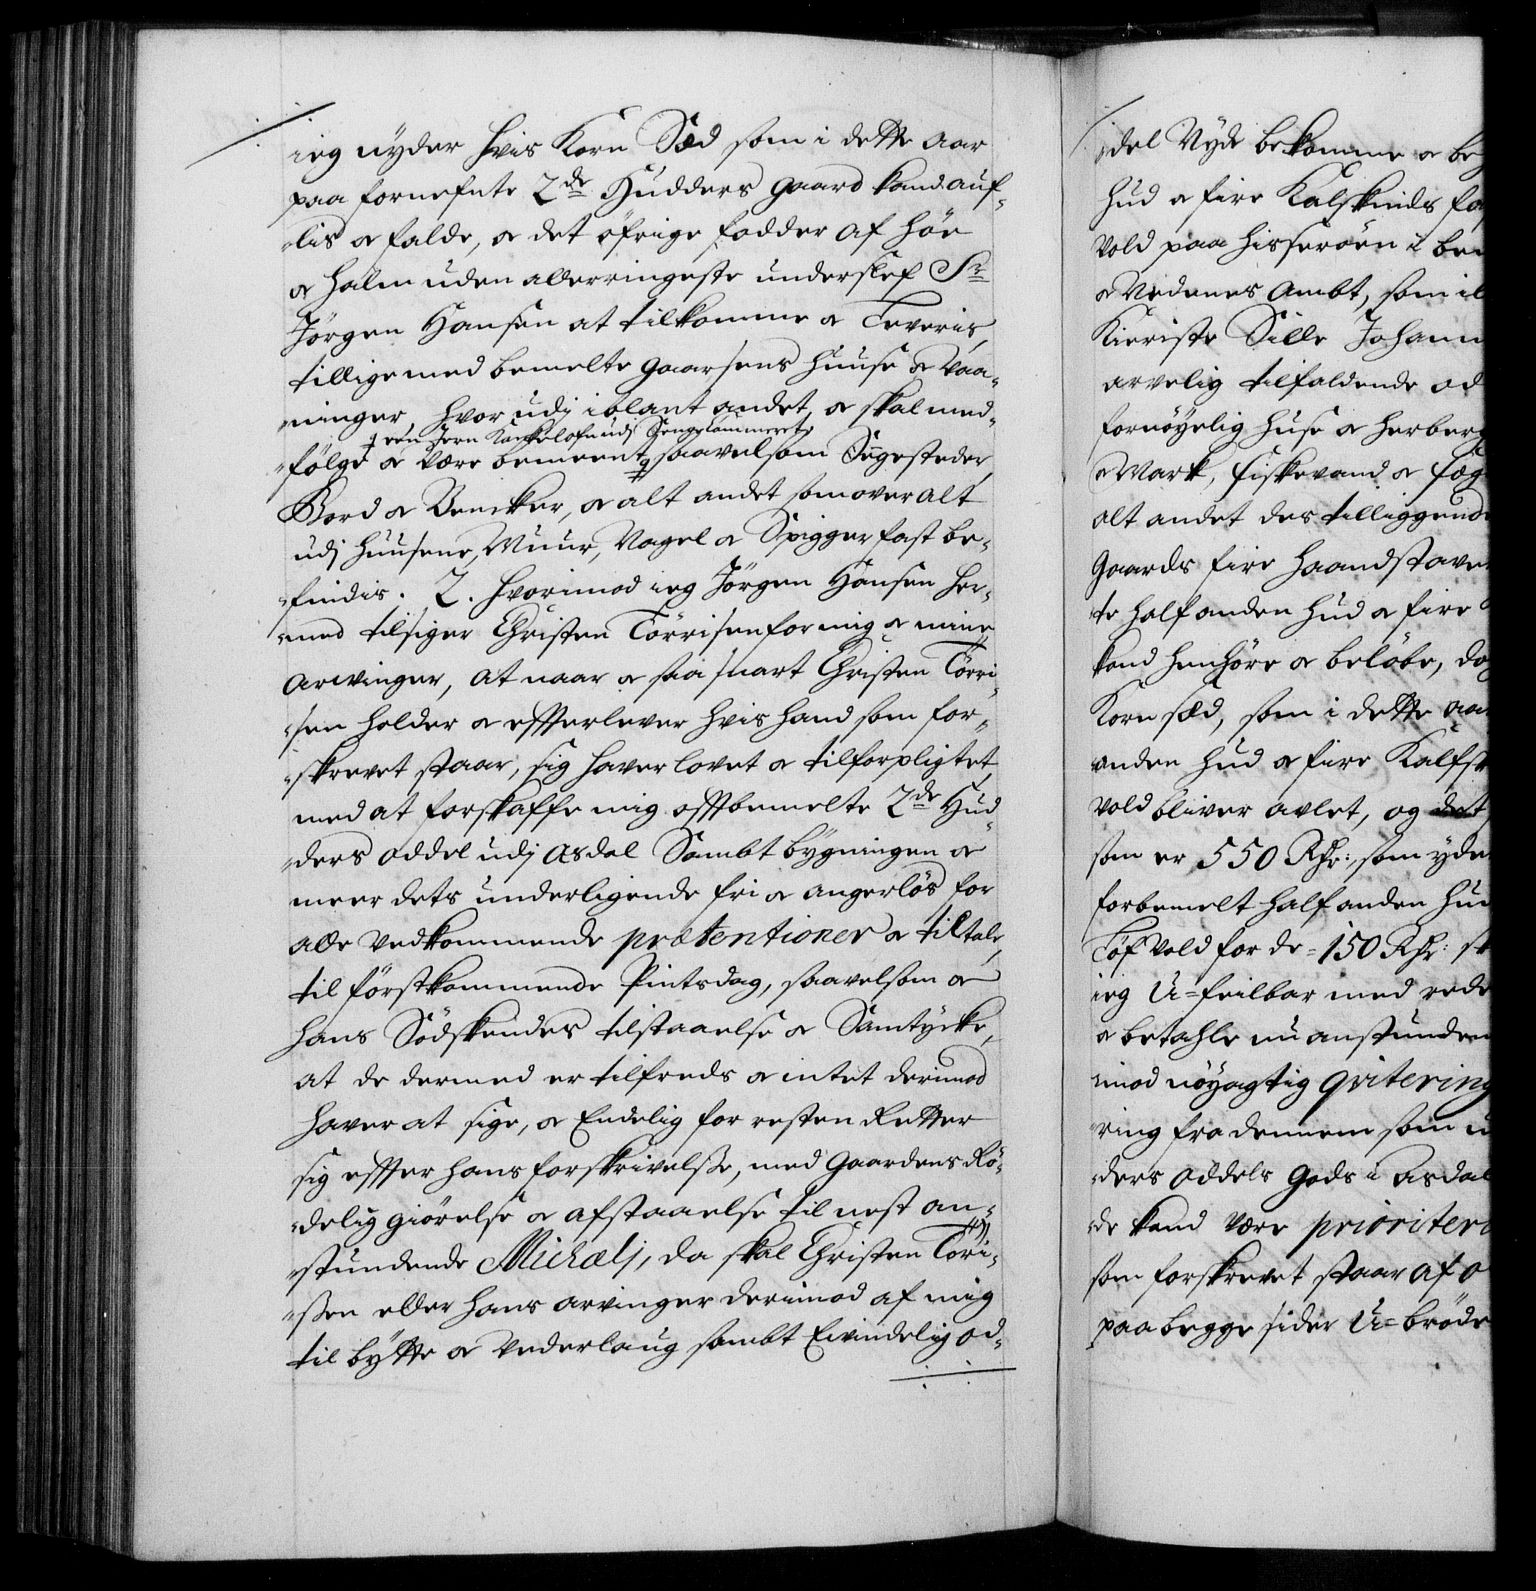 ieg nyder hvis Korn Sæd som i dette Aar
paa fornefnte 2de Hudders gaard kand auf-
lis og falde, og det öfrige fodder af höe
og halm uden allerringeste underslef Sr
Jörgen Hansen at tilkomme og Leveris,
tillige med bemelte gaarsens huuse og Vaa-
ninger, hvor udj iblant andet, og skal med-
een Jern Kackelofn udj Sengekammeret,
fölge og være bemeent, saavelsom Sengesteder,
Bord og Bencker, og alt andet som over alt
udj huusene, Muur, Nagel og Spigger fast be-
findis. 2. hvorimod ieg Jörgen Hansen her-
med tilsiger Christen Törrisen for mig og mine
Arvinger, at naar og saa snart Christen Törri-
sen holder og effterlever hvis hand som for-
skrevet staar, sig haver lovet og tilforpligtet,
med at forskaffe mig offtbemelte 2de Hud-
ders oddel udj Asdal Sambt bygningen og
meer dets underligende fri og angerlös for
alle Vedkommende prætentioner og tiltale,
til förstkommende Pintsdag, saavelsom og
hans Södskendes tilstaaelse og Samtycke,
at de dermed er tilfreds og intet derimod
haver at sige, og Endelig for resten Retter
sig effter hans forskrivelsse, med Gaardens Rö-
delig giörelse og afstaaelse til nest an-
stundende Michælj, da skal Christen Töri-
ssen eller hans arvinger derimod af mig
til bytte og Vederlaug sambt Evindelig od-
del Nyde bekomme og be
hud og fire Kalfskinds fa
Vold paa Hisseröen i
og Nedenes Ambt, som
Kieriste Sille Johann
arvelig tilfaldende od
fornöyelig huse og herberg
og Mark, fiskevand og fæg
alt andet des tilliggende
Gaards fire haandstave
te half anden hud og fire
kand henhöre og belöbe, dog
Korn sæd, som i dette aa
anden hud og fire Kalfsk
Vold bliver avlet, og det
som er 550 Rdr: som yde
forbemelt half anden hu
Töf Vold for de = 150 Rdr:
ieg U-feilbar med rede
og betahle nu anstunden
imod nöyagtig qvitering
ring fra dennem som
ders oddels Gods i Asdal
de kand være prioriter
som forskrevet staar af
paa begge sider U-bröde